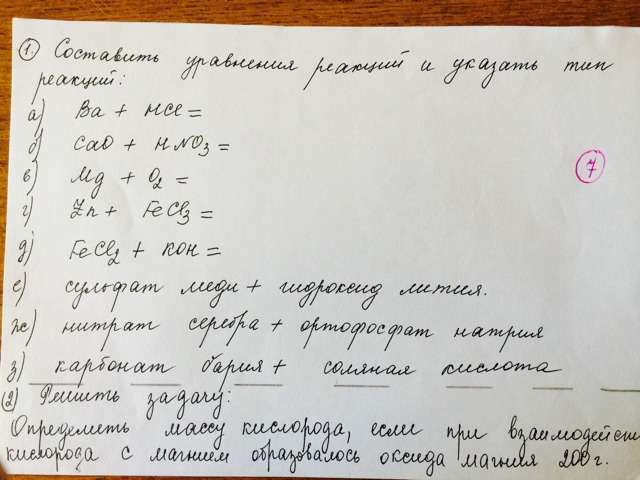 1. Составить уравнения реакций и указать тип
реакций:
а) Ba + HCl =
б) CaO + HNO3 =
в) Mg + O2 =
г) Zn + FeCl3 =
д) FeCl2 + KOH =
е) сульфат меди + гидроксид лития.
ж) нитрат серебра + ортофосфат натрия
з) карбонат бария + соляная кислота
2) Решить задачу:
Определить массу кислорода, если при взаимодейств
кислорода с магнием образовалось оксида магния 200г.
7